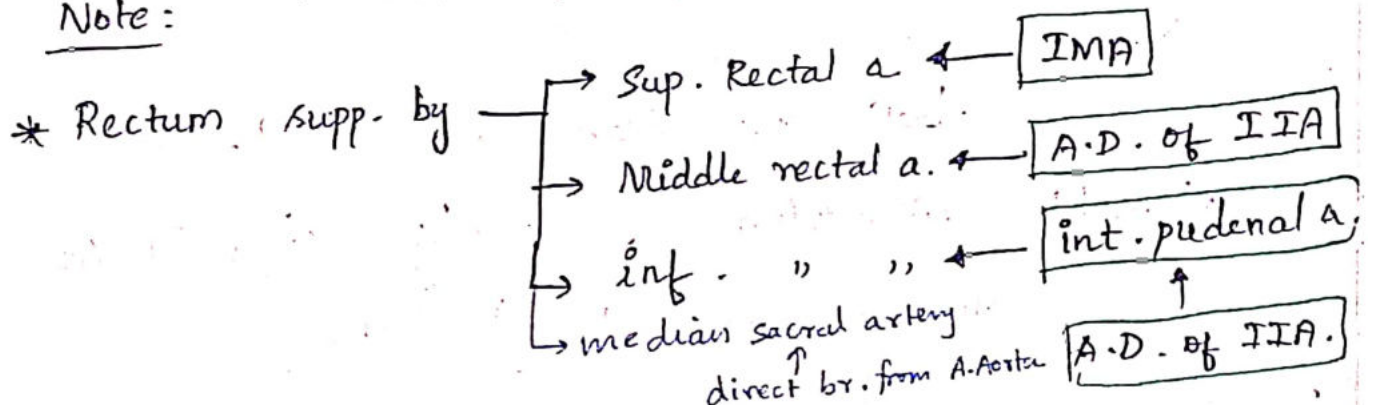 Note:
* Rectum supp. by
Sup. Rectal a
IMA
Middle rectal a.
A.D. of IIA
inf. " "
int. pudenal a.
median sacral artery
direct br. from A.Aorta
A.D. of IIA.